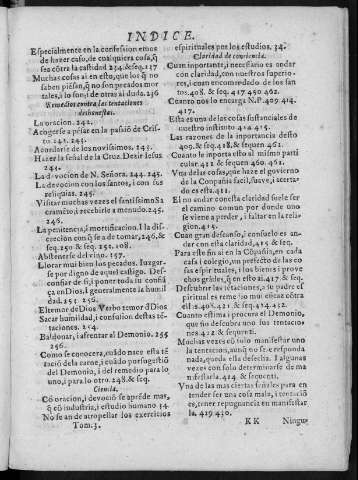 INDICE.
Especialmente en la confession emos
de hazer caso, de cualquiera cosa, q̃
sea cõtra la castidad 234. & seq. 217
Muchas cosas ai en esto, que los q̃ no
saben piẽsan, q̃ no son peœados mor
tales, i lo son; i de otras ai duda. 236
Remedios contra las tentaciones
deshonestas.
La oracion. 242.
Acogerse a pẽsar en la passiõ de Cris
to. 242. 243.
Acordarse de los novissimos. 243.
Hazer la señal de la Cruz. Dezir Iesus
244.
La devocion de N. Señora. 244. 245.
La devocion con los santos, i con sus
reliquias. 245.
Visitar muchas vezes el santissimo Sa
cramẽto, i recebirle a menudo. 245.
246.
La penitencia, i mortificacion. I la dis
crecion con q̃ se a de tomar, 246. &
seq. 250 & seq. 251. 108.
Abstenerse del vino. 157.
Llorar mui bien los pecados. Iuzgar
se por digno de aquel castigo. Desc
confiar de si, i poner toda su confiã
ça en Dios. I generalmente la humil
dad. 251 256.
El temor de Dios
Sacar humildad, i confusion destas tẽ
taciones. 254.
Baldonar, i afrentar al Demonio. 255
256.
Como se conocera, cuãdo nace esta tẽ
tacion de la carne, i cuãdo por sugestiõ
del Demonio, i del remedio para lo
uno, i para lo otro. 248. & seq.
Ciencia.
Cõ oracion, i devociõ se aprẽde mas,
q̃ cõ industria, i estudio humano 34.
No se an de atropellar los exercicios
Tom. 3.
espirituales por los estudios. 34.
Claridad de conciencia.
Cuan importante, i necessario es andar
con claridad, con nuestros superio-
res, i cuan encomendado de los san
tos. 408. & seq. 417 450 462.
Cuanto nos lo encarga N. P. 409 414.
417.
Esta es una de las cosas sustanciales de
nuestro instituto 414 415.
Las razones de la importancia desto
409. & seq. 418. & sequen 461.
Cuanto le importa esto al mismo parti
cular. 411 & sequen 460. 461.
Vna de las cosas, que haze el govierno
de la Compañia facil, suave, i acerta-
do es esta. 411.
El no andar con esta claridad suele ser
el camino comun por donde uno
se viene a perder, i faltar en la reli-
gion. 414.
Cuan gran descanso, i consuelo es an-
dar con esta claridad, 415 & seq.
Para este fin ai en la Cõpañia, en cada
casa i colegio, un prefecto de las co
sas espirituales, i los bienes i prove
chos grãdes, q̃ en esto ai. 417 & seq.
Descubrir las tẽtaciones, a su padre es
piritual es remedio mui eficaz cõtra
ellas: 408. 411. & seq. 421. & seq.
Cuanto estima i procura el Demonio,
que no descubra uno sus tentacio-
nes. 422 & sequenti.
Muchas vezes cõ solo manifestar uno
la tentacion, aunq̃ no se e responda
nada, queda ella desecha. I algunas
vezes con solo determinarse de ma
nifestarla. 414. & sequenti.
Vna de las mas ciertas señales para en
tender ser una cosa mala, i tentaciõ,
es tener repugnancia en manifestar
la. 419 430.
KK Ningu⹀